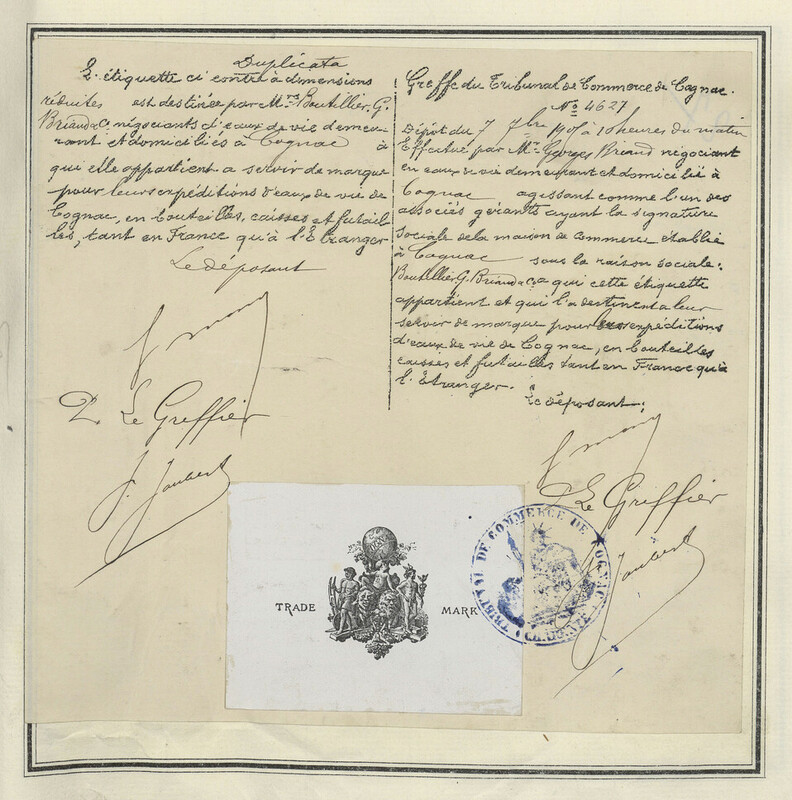 Duplicata
L'étiquette ci contre à dimensions
réduites est destinée par Mrs Boutillier, G.
Briand & Co négociants d'eaux de vie demeu-
rant et domiciliés à Cognac à
qui elle appartient a servir de marque
pour leurs expéditions d'eaux de vie de
Cognac, en bouteilles, caisses et futail
les, tant en France qu'à l'Étranger
Le déposant
Le Greffier
J. Joubert
Greffe du Tribunal de Commerce de Cognac.
No 4627
Dépôt du 7 7bre à 10 heures du matin
Effectué par Mr Georges Briand négociant
en eaux de vie demeurant et domicilié à
Cognac agissant comme l'un des
associés gérants ayant la signature
sociale de la maison de commerce établie
à Cognac sous la raison sociale:
Boutillier, G. Briand & Co a qui cette étiquette
appartient et qui l'a destinent a leur
servir de marque pour leurs expéditions
d'eaux de vie de Cognac, en bouteilles
caisses et futailles tant en France qu'à
l'Étranger.
Le déposant:
Le Greffier
J. Joubert
TRADE MARK
TRIBUNAL DE COMMERCE DE COGNAC